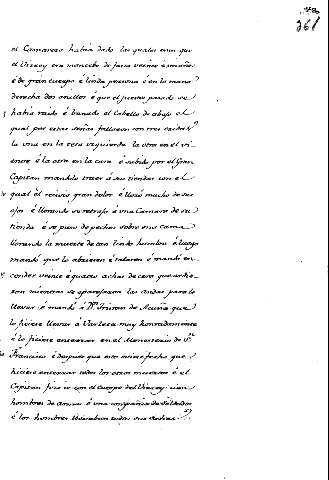 361
el Camarero habia dado las quales eran que
el Virrey era mancebo de fasta veinte é seis años
é de gran cuerpo é linda persona é en la mano
derecha dos anillos é que el jueves pasado se
habia raido é banado el Cabello de abajo el
qual por estas señas fallaron con tres
la una en la ceja izquierda la otra en el vi-
entre é la otra en la cara é sabido por el Gran
Capitan mandólo traer á sus tiendas con el
qual él recivió gran dolor é lloró mucho de sus
ojos é llorando se retrajo á una Camara de su
tienda é se puso de pechos sobre una cama
llorando la muerte de tan lindo hombre é luego
mandó que lo abriesen é salasen é mandó en-
cender veinte é quatro achas de cera que ardie-
sen mientras se aparejasen las andas para lo
llevar é mandó á Dn. Tristan de Acuña que
lo ficiese llevar á Barleta muy honradamente
é lo ficiese enterrar en el Monasterio de Sn.
Francisco é despues que esto oviese fecho que
hiciese enterrar todos los otros muertos é el
Capitan fizo ir con el cuerpo del Virrey cien
hombres de armas é una compañia de Soldados
é los hombres llevaban todos sus